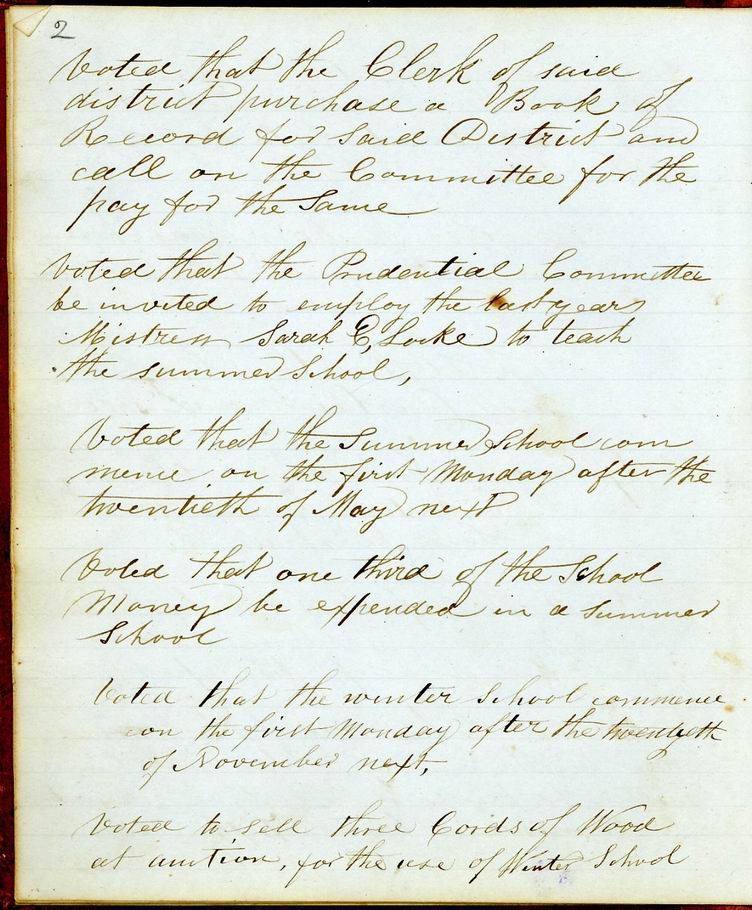 2
Voted that the Clerk of said
district purchase a Book of
Record for Said District and
call on the Committee for the
pay for the Same
Voted that the Prudential Committee
be invited to employ the last years
Mistress Sarah E, Locke to teach
the summer School,
Voted that the Summer School com
mence on the first Monday after the
twentieth of May next
Voted that one third of the School
Money be expended in a Summer
School
Voted that the winter School commence
on the first Monday after the twentyeth
of November next,
Voted to sell three Cords of Wood
at auction, for the use of Winter School